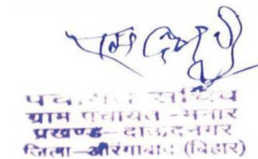 पंचायत सचिव
ग्राम पंचायत -मनार
प्रखण्ड- दाऊदनगर
जिला-औरंगाबाद (बिहार)